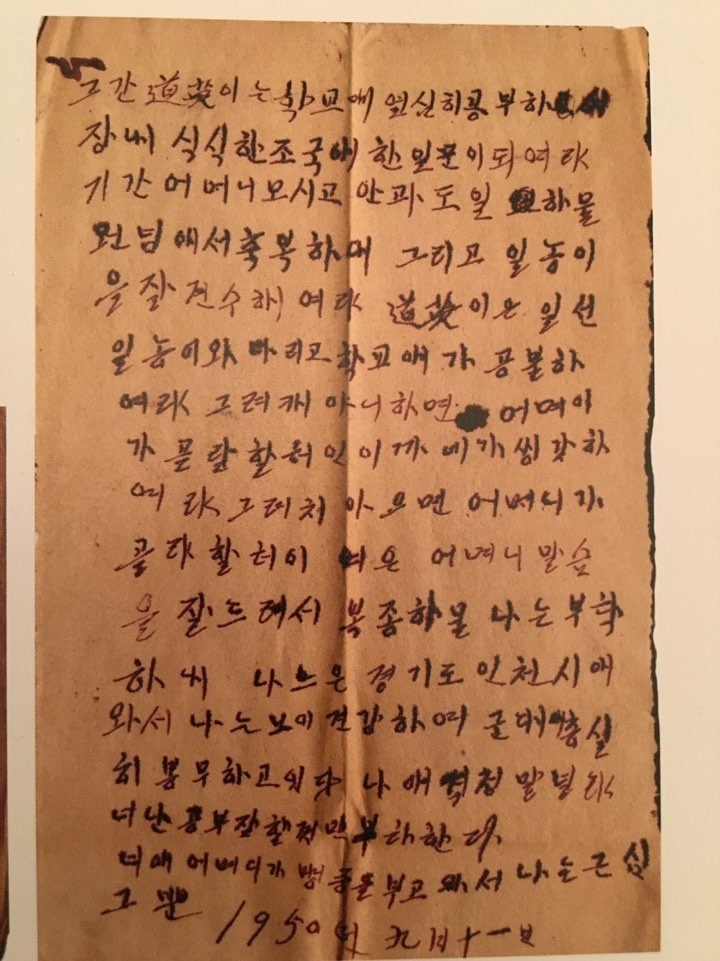 그간 道英이는 학교애 열심히 공부하
장내 식식한 조국애 한 일꾼이 되여라
기간 어머니 모시고 안과 도일 하믈
원님애서 축복하며 그리고 일농이
을 잘 건수해여라 道英이은 일선
일농이와 따리고 학교애 가 공불하
여라 그러캐 아니하면 어며이
가 곤란할 터인이까 네가 씽각하
여라 그러치 아으면 어머니가
골라할 터이 어며니 말슴
을 잘 드러서 복종하믈 나는 부탁
하며 나느은 경기도 인천시애
와서 나는 모미 건감하여 군대 충실
히 봉무하고 있다 나애 걱정 말녈라
너난 공부 잘할 것만 부탁한다.
너애 어머니가 병중을 두고 와서 나는 근심
그만 1950년 九月十一日